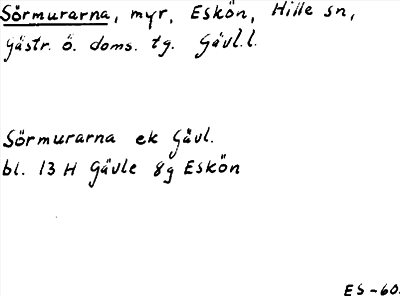 Sörmurarna, myr, Eskön, Hille sn,
Gästr. ö. doms. tg. Gävl.l.
Sörmurarna ek Gävl.
bl. 13 H Gävle 8g Eskön
ES-60.